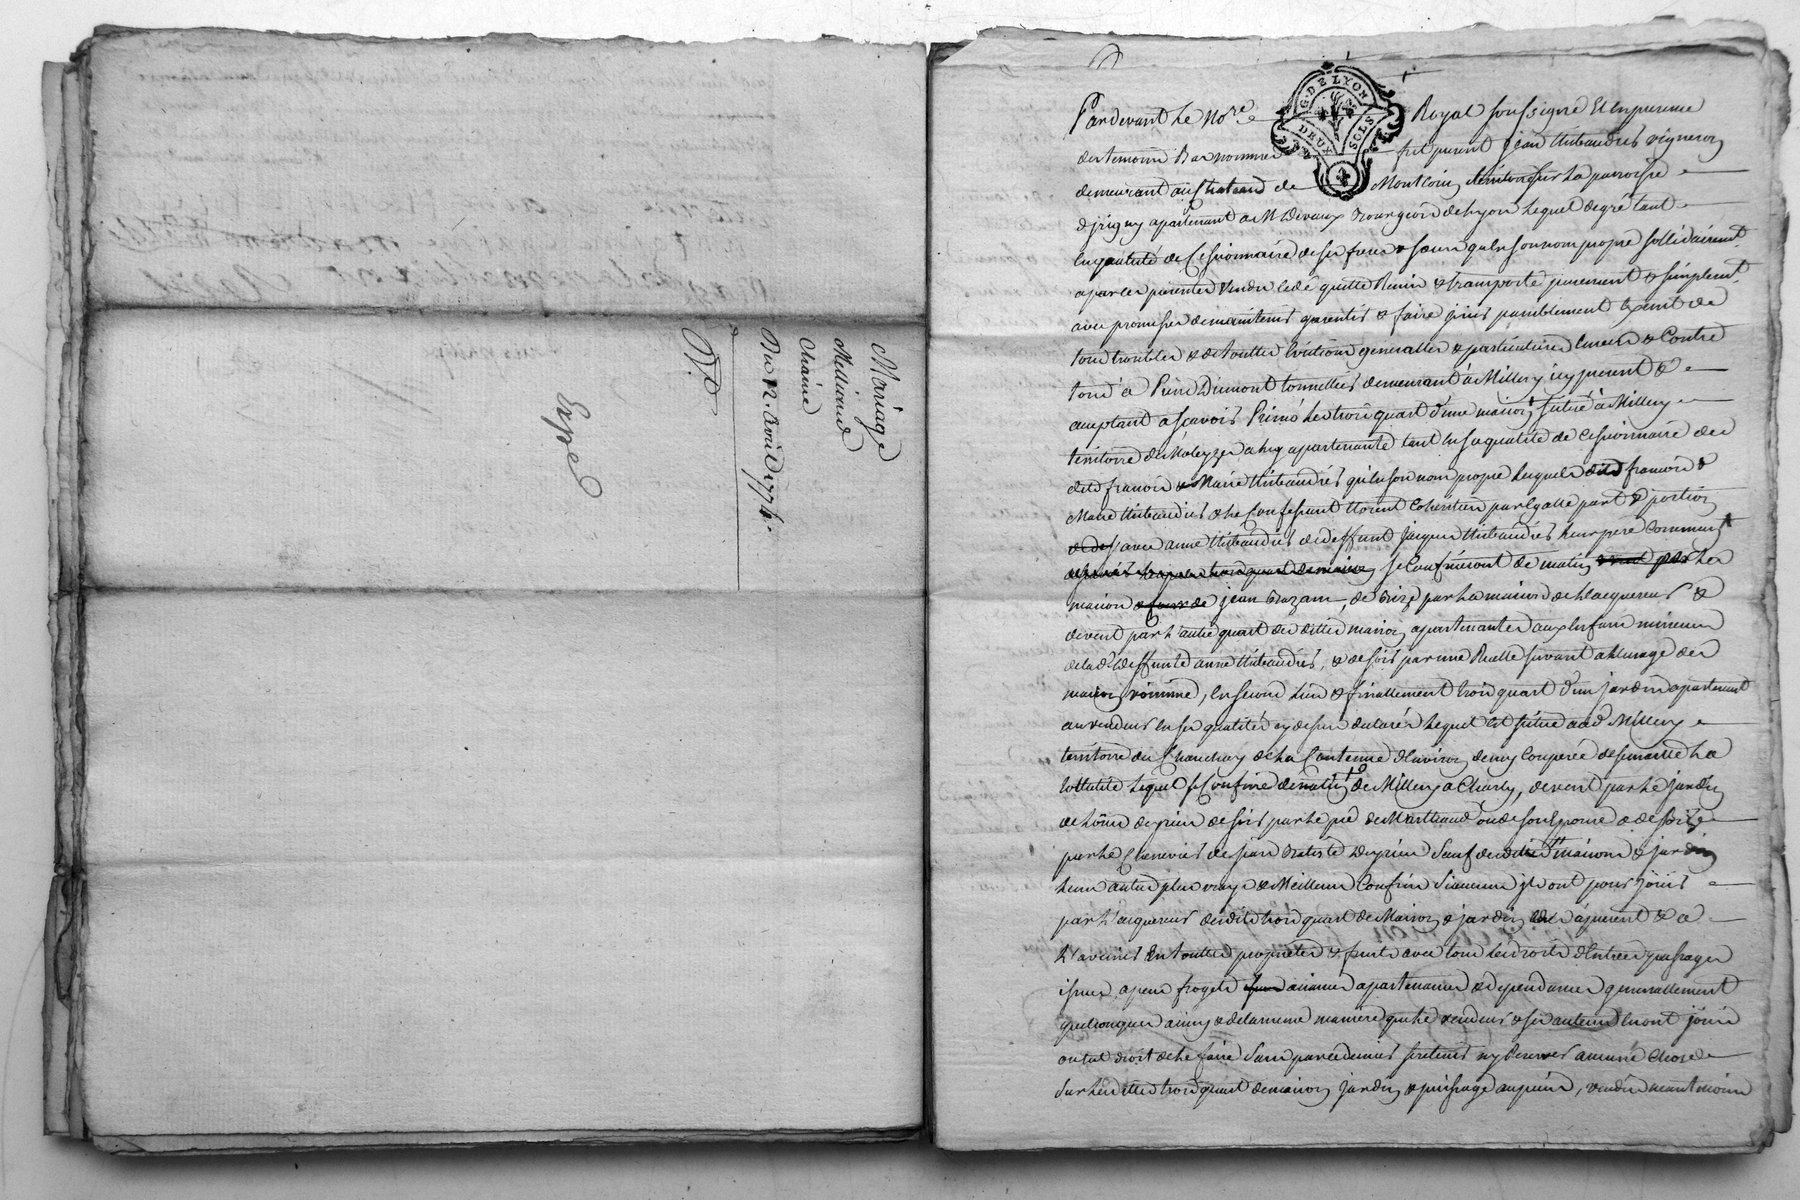 Mariage
Milliand
Chaine
Du 12. Avril 1774.
Expé
G. DE LYON
DEUX SOLS
Pardevant le No.re Royal soussigné Et En presence
des temoins Bas nommes fut present jean thibaudier vigneron
demeurant au Chateau de Montcoin territoire sur La paroisse
d'jrigny apartenant a M.r Devaux Bourgeois de Lyon Lequel de gré tant
En qualité de Cessionnaire de ses frere & soeur qu'en son nom propre sollidairemt.
a par ces presentes vendu cedé quitté Remis & transporté purement & simplemt.
avec promesse de maintenir garentir & faire jouir paisiblement Exemt de
tous troubles & de touttes Evictions generalles & particulieres Envers & Contre
tous à Pierre Dumont tonnellier demeurant à Millery icy present &
acceptant ascavoir Primo Les trois quart d'une maison situé à Millery
territoire du a luy apartenante tant en sa qualité de Cessionnaire des
dits francois & Marie thibaudier qu'en son nom propre Lesquels dits francois &
Marie thibaudier & Le Confessant Etoient Coheritiers par Egalle part & portion
avec anne thibaudier de deffunt jacques thibaudier Leur pere Commun
se Confinsront de matin La
maison jean Bazam, de Bize par La maison de L'acquereur &
de vent par L'autre quart des dittes maison apartenantes aux Enfans mineurs
de la d.e deffunte anne thibaudier, & de soir par une Ruelle servant a L'usage des
maison voisine, En second Lieu & finallement trois quart d'un jardin apartenant
au vendeur En ses qualités cy dessus declarés Lequel Est situé aud. Millery
territoire du de La Contenue d'Environ demy Couperée de semaille La
tottalité Lequel se Confine de matin de Millery a Charly, de vent par Le jardin
de de soir par Le pré de ou de son Epouse & de bize
par Le Chenevier de jean Batiste Sauf desdittes maison & jardin
Leurs autres plus vrays & Meilleurs Confins sy aucuns jl ont pour jouir
par L'acquereur desdits trois quart de Maison & jardin des a present & a
L'avenir En touttes proprietés & fruits avec tous Les droits d'Entrées passages
issues, aisances apartenances & dependances generallement
quelconques ainsy & de la meme maniere que Le vendeur & ses auteurs En ont joui
ou eut droit de Le faire sans par ce dernier se retenir ny Reserver aucune chose
sur Les dittes trois quart de maison jardin & puisage au puis, vendus neantmoins